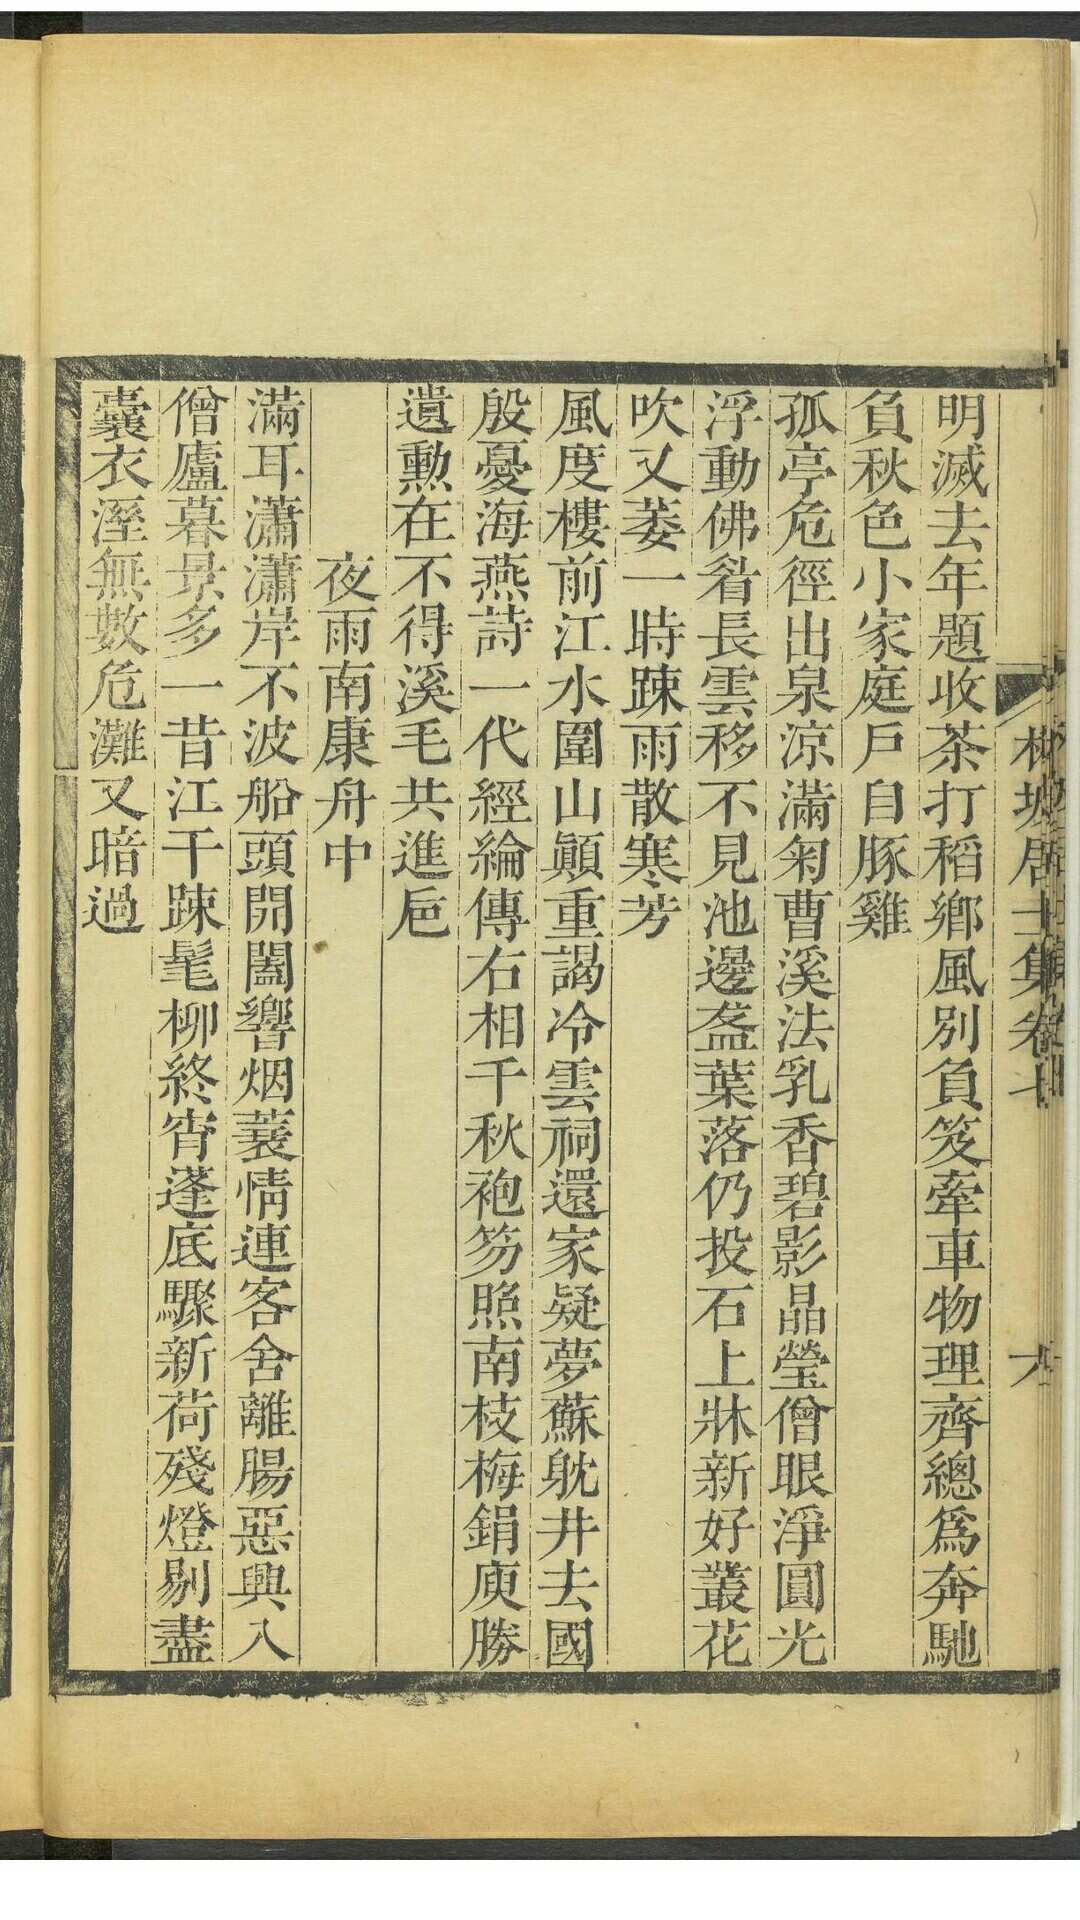 居士集卷十
明滅去年題收茶打稻鄉風別負笈牽車物理齊總爲奔馳
負秋色小家庭戶自豚雞
孤亭危徑出泉涼滿匊曹溪法乳香碧影晶瑩僧眼淨圓光
浮動佛睂長雲移不見池邊盋葉落仍投石上牀新好叢花
吹又萎一時踈雨散寒芳
風度樓前江水圍山顚重謁冷雲祠還家疑夢蘇躭井去國
殷憂海燕詩一代經綸傳右相千秋袍笏照南枝梅鋗庾勝
遺勳在不得溪毛共進巵
夜雨南康舟中
滿耳瀟瀟岸不波船頭開闔響烟蓑情連客舍離腸惡興入
僧廬暮景多一昔江干踈髦柳終宵蓬底驟新荷殘燈剔盡
囊衣溼無數危灘又暗過